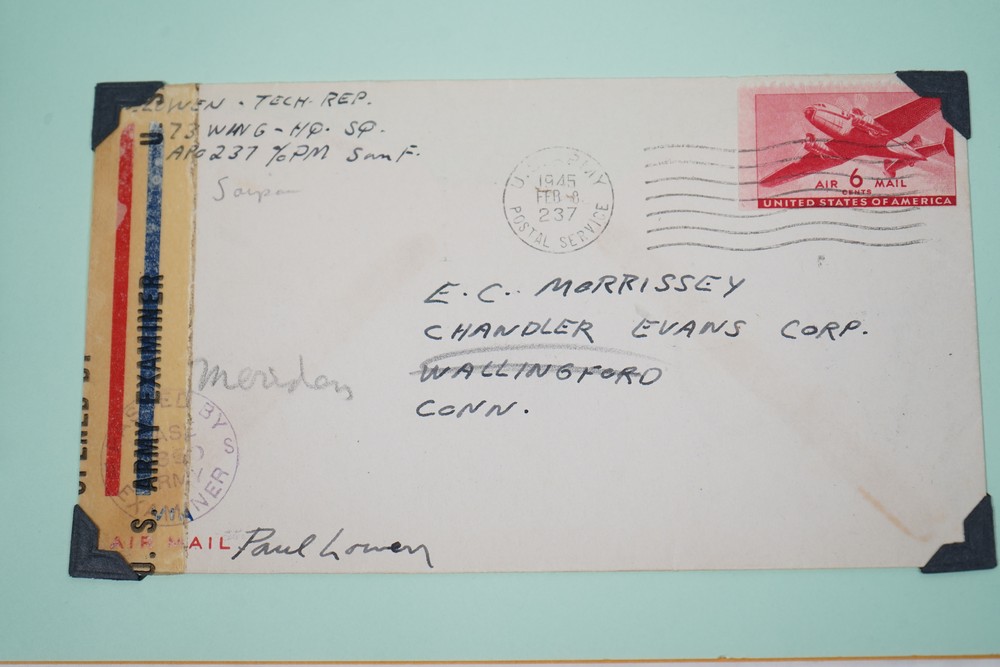 LOWEN - TECH. REP.
73 WING - HQ. SQ.
APO 237 %PM San F.
Saipan
U.S. ARMY
1945
FEB 8
237
POSTAL SERVICE
AIR 6 MAIL
CENTS
UNITED STATES OF AMERICA
E. C. MORRISSEY
CHANDLER EVANS CORP.
WALLINGFORD
CONN.
Meriden
OPENED BY
U.S. ARMY EXAMINER
U
BY
BASE
ARMY
EXAMINER
S
AIR MAIL
Paul Lowen